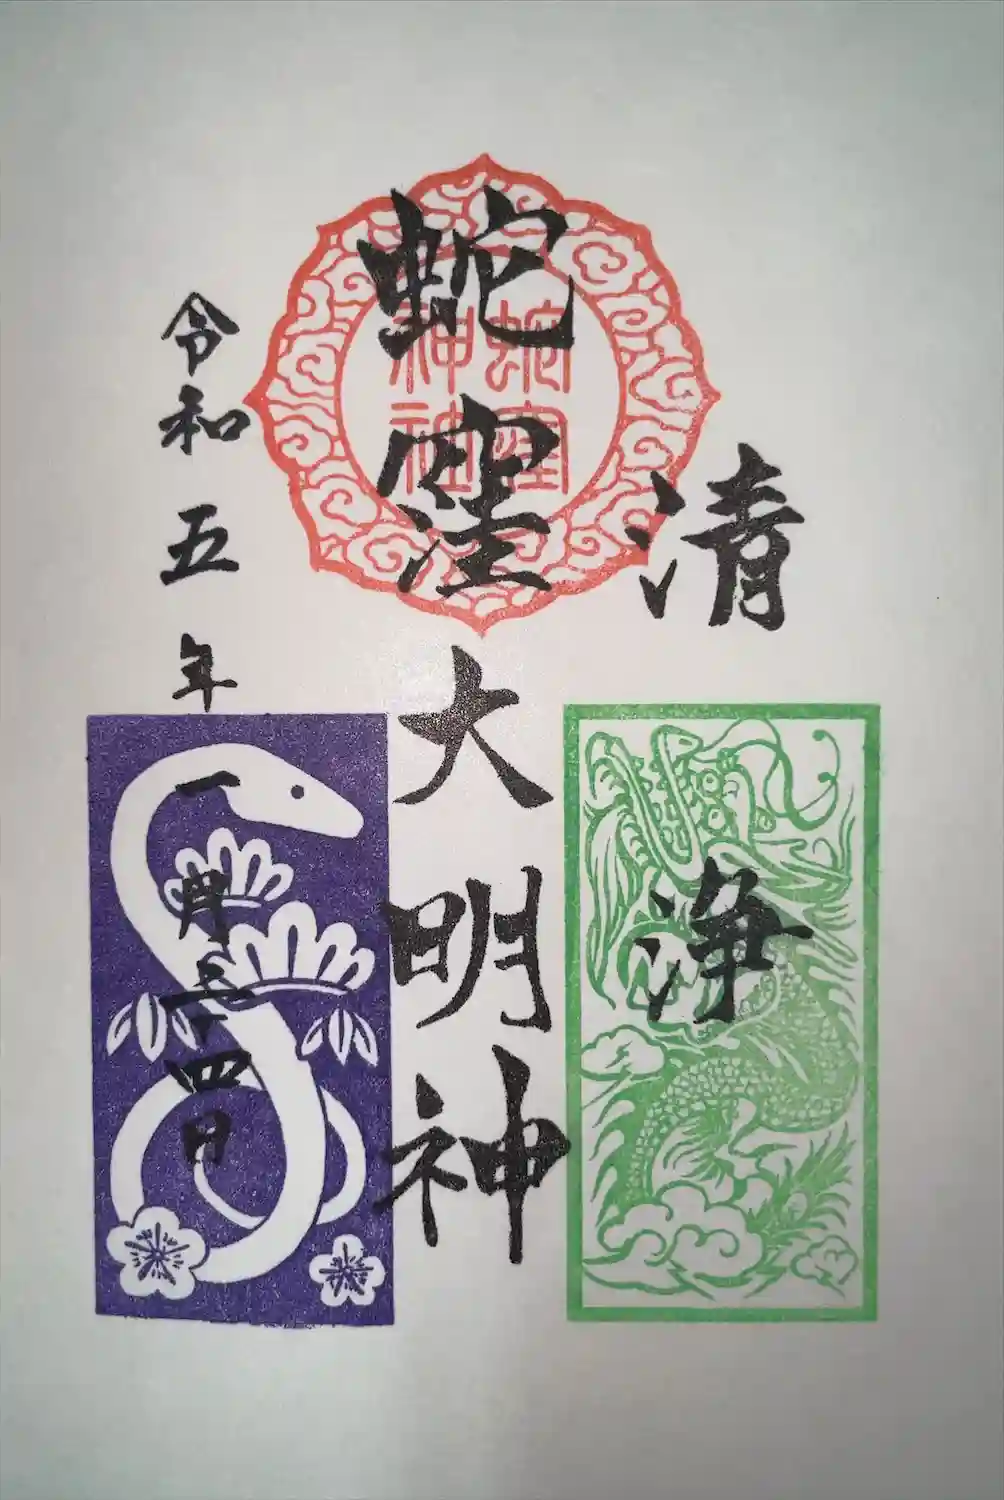 清浄
蛇窪大明神
蛇窪
神社
令和五年一月二十四日